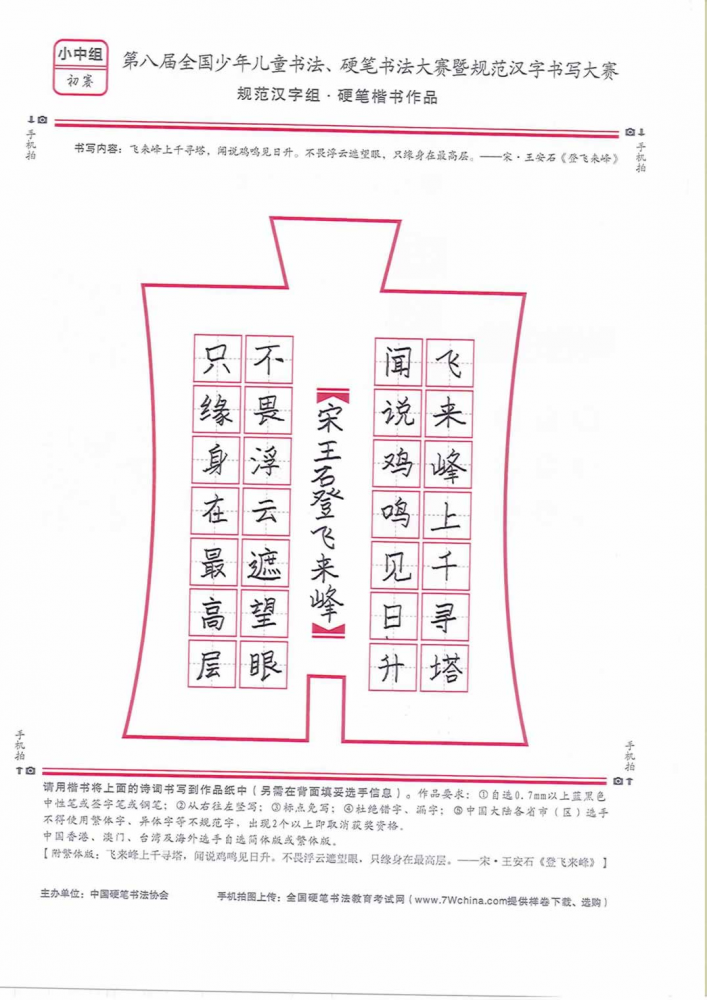 小中组
初赛
第八届全国少年儿童书法、硬笔书法大赛暨规范汉字书写大赛
规范汉字组·硬笔楷书作品
手机拍
手机拍
书写内容：飞来峰上千寻塔，闻说鸡鸣见日升。不畏浮云遮望眼，只缘身在最高层。——宋·王安石《登飞来峰》
飞来峰上千寻塔
闻说鸡鸣见日升
宋王石登飞来峰
不畏浮云遮望眼
只缘身在最高层
手机拍
手机拍
请用楷书将上面的诗词书写到作品纸中（另需在背面填妥选手信息）。作品要求：①自选0.7mm以上蓝黑色
中性笔或签字笔或钢笔；②从右往左竖写；③标点免写；④杜绝错字、漏字；⑤中国大陆各省市（区）选手
不得使用繁体字、异体字等不规范字，出现2个以上即取消获奖资格。
中国香港、澳门、台湾及海外选手自选简体版或繁体版。
【附繁体版：飞来峰上千寻塔，闻说鸡鸣见日升。不畏浮云遮望眼，只缘身在最高层。——宋·王安石《登飞来峰》】
主办单位：中国硬笔书法协会
手机拍图上传：全国硬笔书法教育考试网（www.7Wchina.com提供样卷下载、选购）